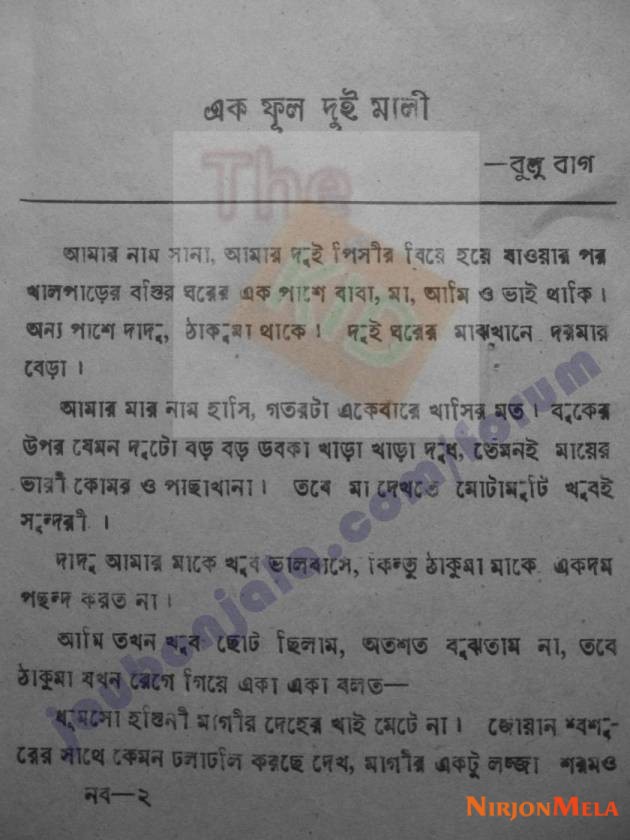 এক ফুল দুই মালী
—বুলু বাগ
আমার নাম সানা, আমার দুই পিসীর বিয়ে হয়ে যাওয়ার পর
খালপাড়ের বস্তির ঘরের এক পাশে বাবা, মা, আমি ও ভাই থাকি।
অন্য পাশে দাদু, ঠাকুমা থাকে। দুই ঘরের মাঝখানে দরমার
বেড়া।
আমার মার নাম হাসি, গতরটা একেবারে খাসির মত। বুকের
উপর যেমন দুটো বড় বড় ডবকা খাড়া খাড়া দুধ, তেমনই মায়ের
ভারী কোমর ও পাছাখানা। তবে মা দেখতে মোটামুটি খুবই
সুন্দরী।
দাদু আমার মাকে খুব ভালবাসে, কিন্তু ঠাকুমা মাকে একদম
পছন্দ করত না।
আমি তখন খুব ছোট ছিলাম, অতশত বুঝতাম না, তবে
ঠাকুমা যখন রেগে গিয়ে একা একা বলত—
ধুমসো হস্তিনী মাগীর দেহের খাই মেটে না। জোয়ান শ্বশু-
রের সাথে কেমন ঢলাঢলি করছে দেখ, মাগীর একটু লজ্জা শরমও
নব—২
The
KID
joubonjala.com/forum
NIRJONMELA